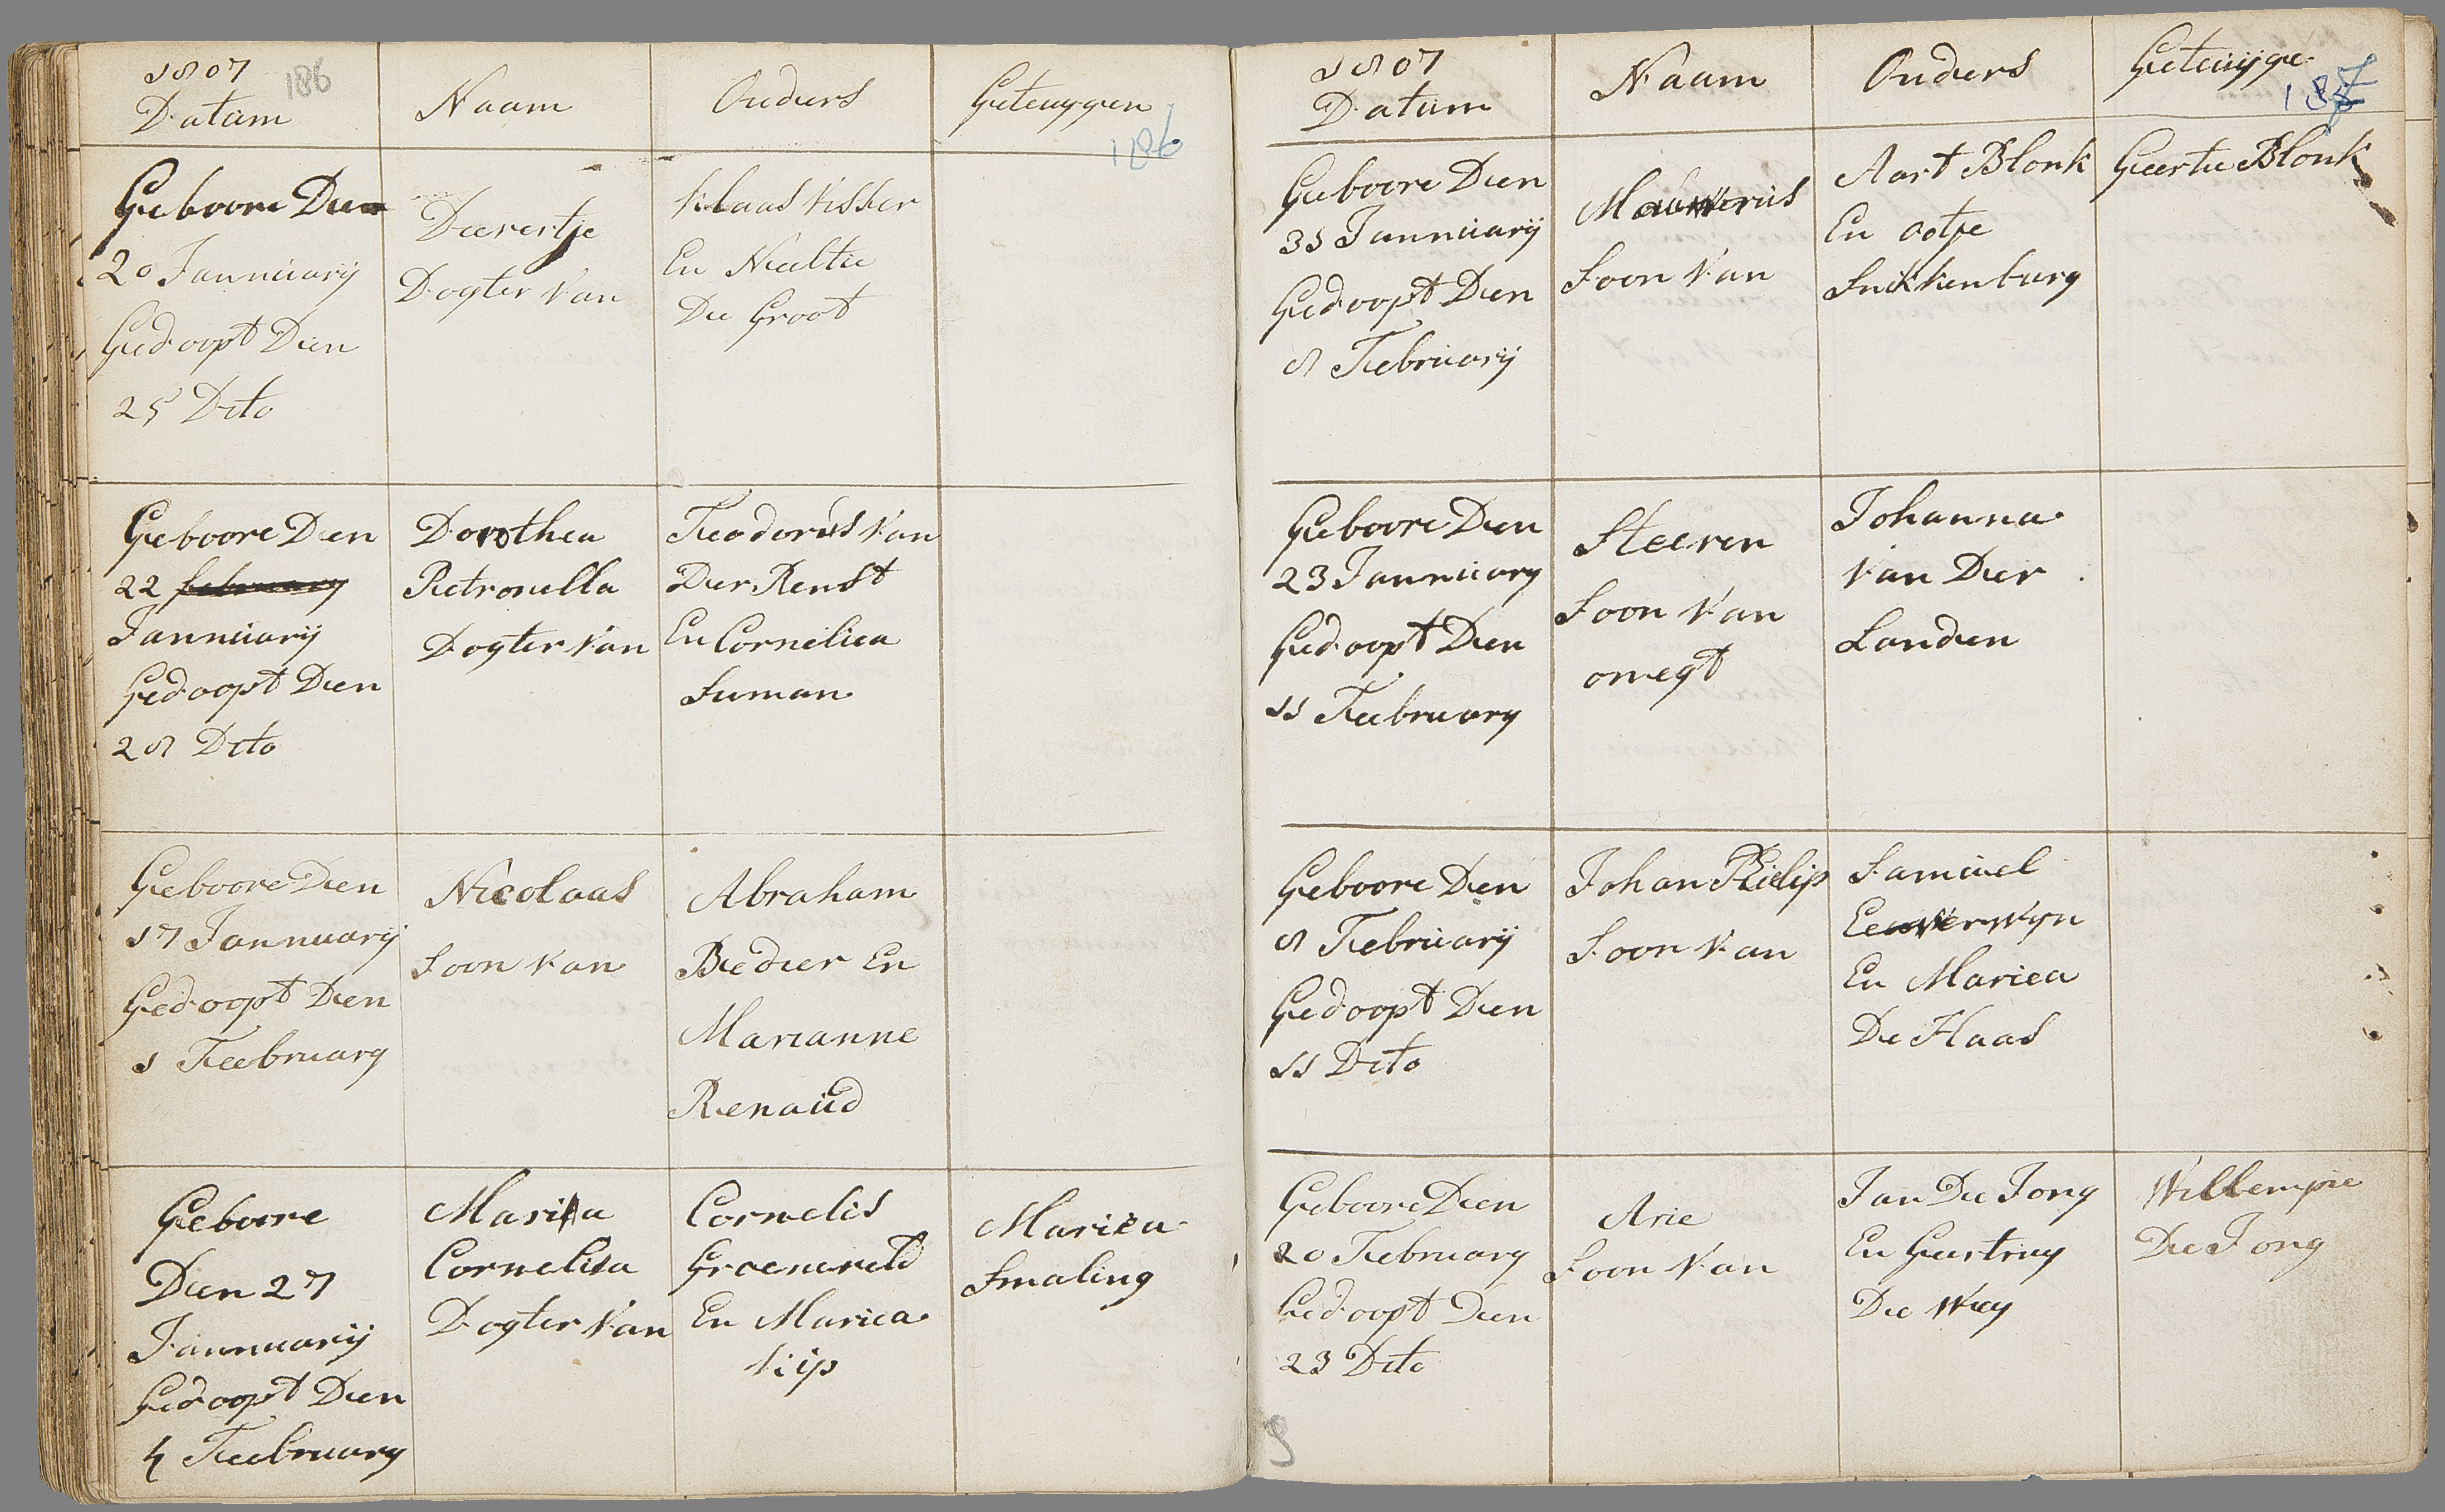 1807
Datum
186
Naam
Ouders
Geteuygen
186
Geboore Den
20 Jannuarij
Gedoopt Den
25 Dito
Deerertje
Dogter Van
Klaas Visser
En Neeltie
De Groot
Geboore Den
22
Jannuarij
Gedoopt Den
28 Dito
Dorothea
Petronella
Dogter Van
Feodorus Van
Der Renst
En Cornelica
Suman
Geboore Den
17 Jannuarij
Gedoopt Den
1 Feebruary
Nicolaas
Soon Van
Abraham
Bedier En
Marianne
Renaud
Geboore
Den 27
Jannuarij
Gedoopt Den
4 Feebruary
Maria
Cornelisa
Dogter Van
Cornelis
Groeneveld
En Mariea
Kip
Mariea
Smaling
1807
Datum
Naam
Ouders
Getuijge
187
Geboore Den
31 Jannuarij
Gedoopt Den
8 Februarij
Soon Van
Aart Blonk
En Ootje
Snikkenburg
Geertie Blonk
Geboore Den
23 Jannuary
Gedoopt Den
11 Feebruary
Steeven
Soon Van
onegt
Johanna
Van Der
Landen
Geboore Den
8 Februarij
Gedoopt Den
11 Dito
Johan Philip
Soon Van
Samuel
En Mariea
De Haas
Geboore Den
20 February
Gedoopt Den
23 Dito
Arie
Soon Van
Jan De Jong
En Geertruy
De Wey
Willempie
De Jong
9